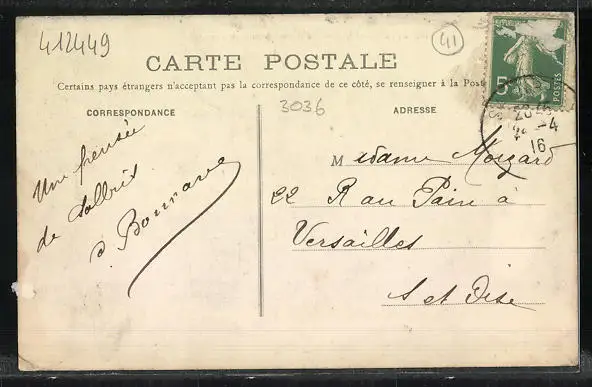 412449
41
CARTE POSTALE
Certains pays étrangers n'acceptant pas la correspondance de ce côté, se renseigner à la Poste
5
POSTES
CORRESPONDANCE
3036
ADRESSE
-4
16
Une pensée
de Salbris
Madame
22 R au Pain à
Versailles
S et Oise